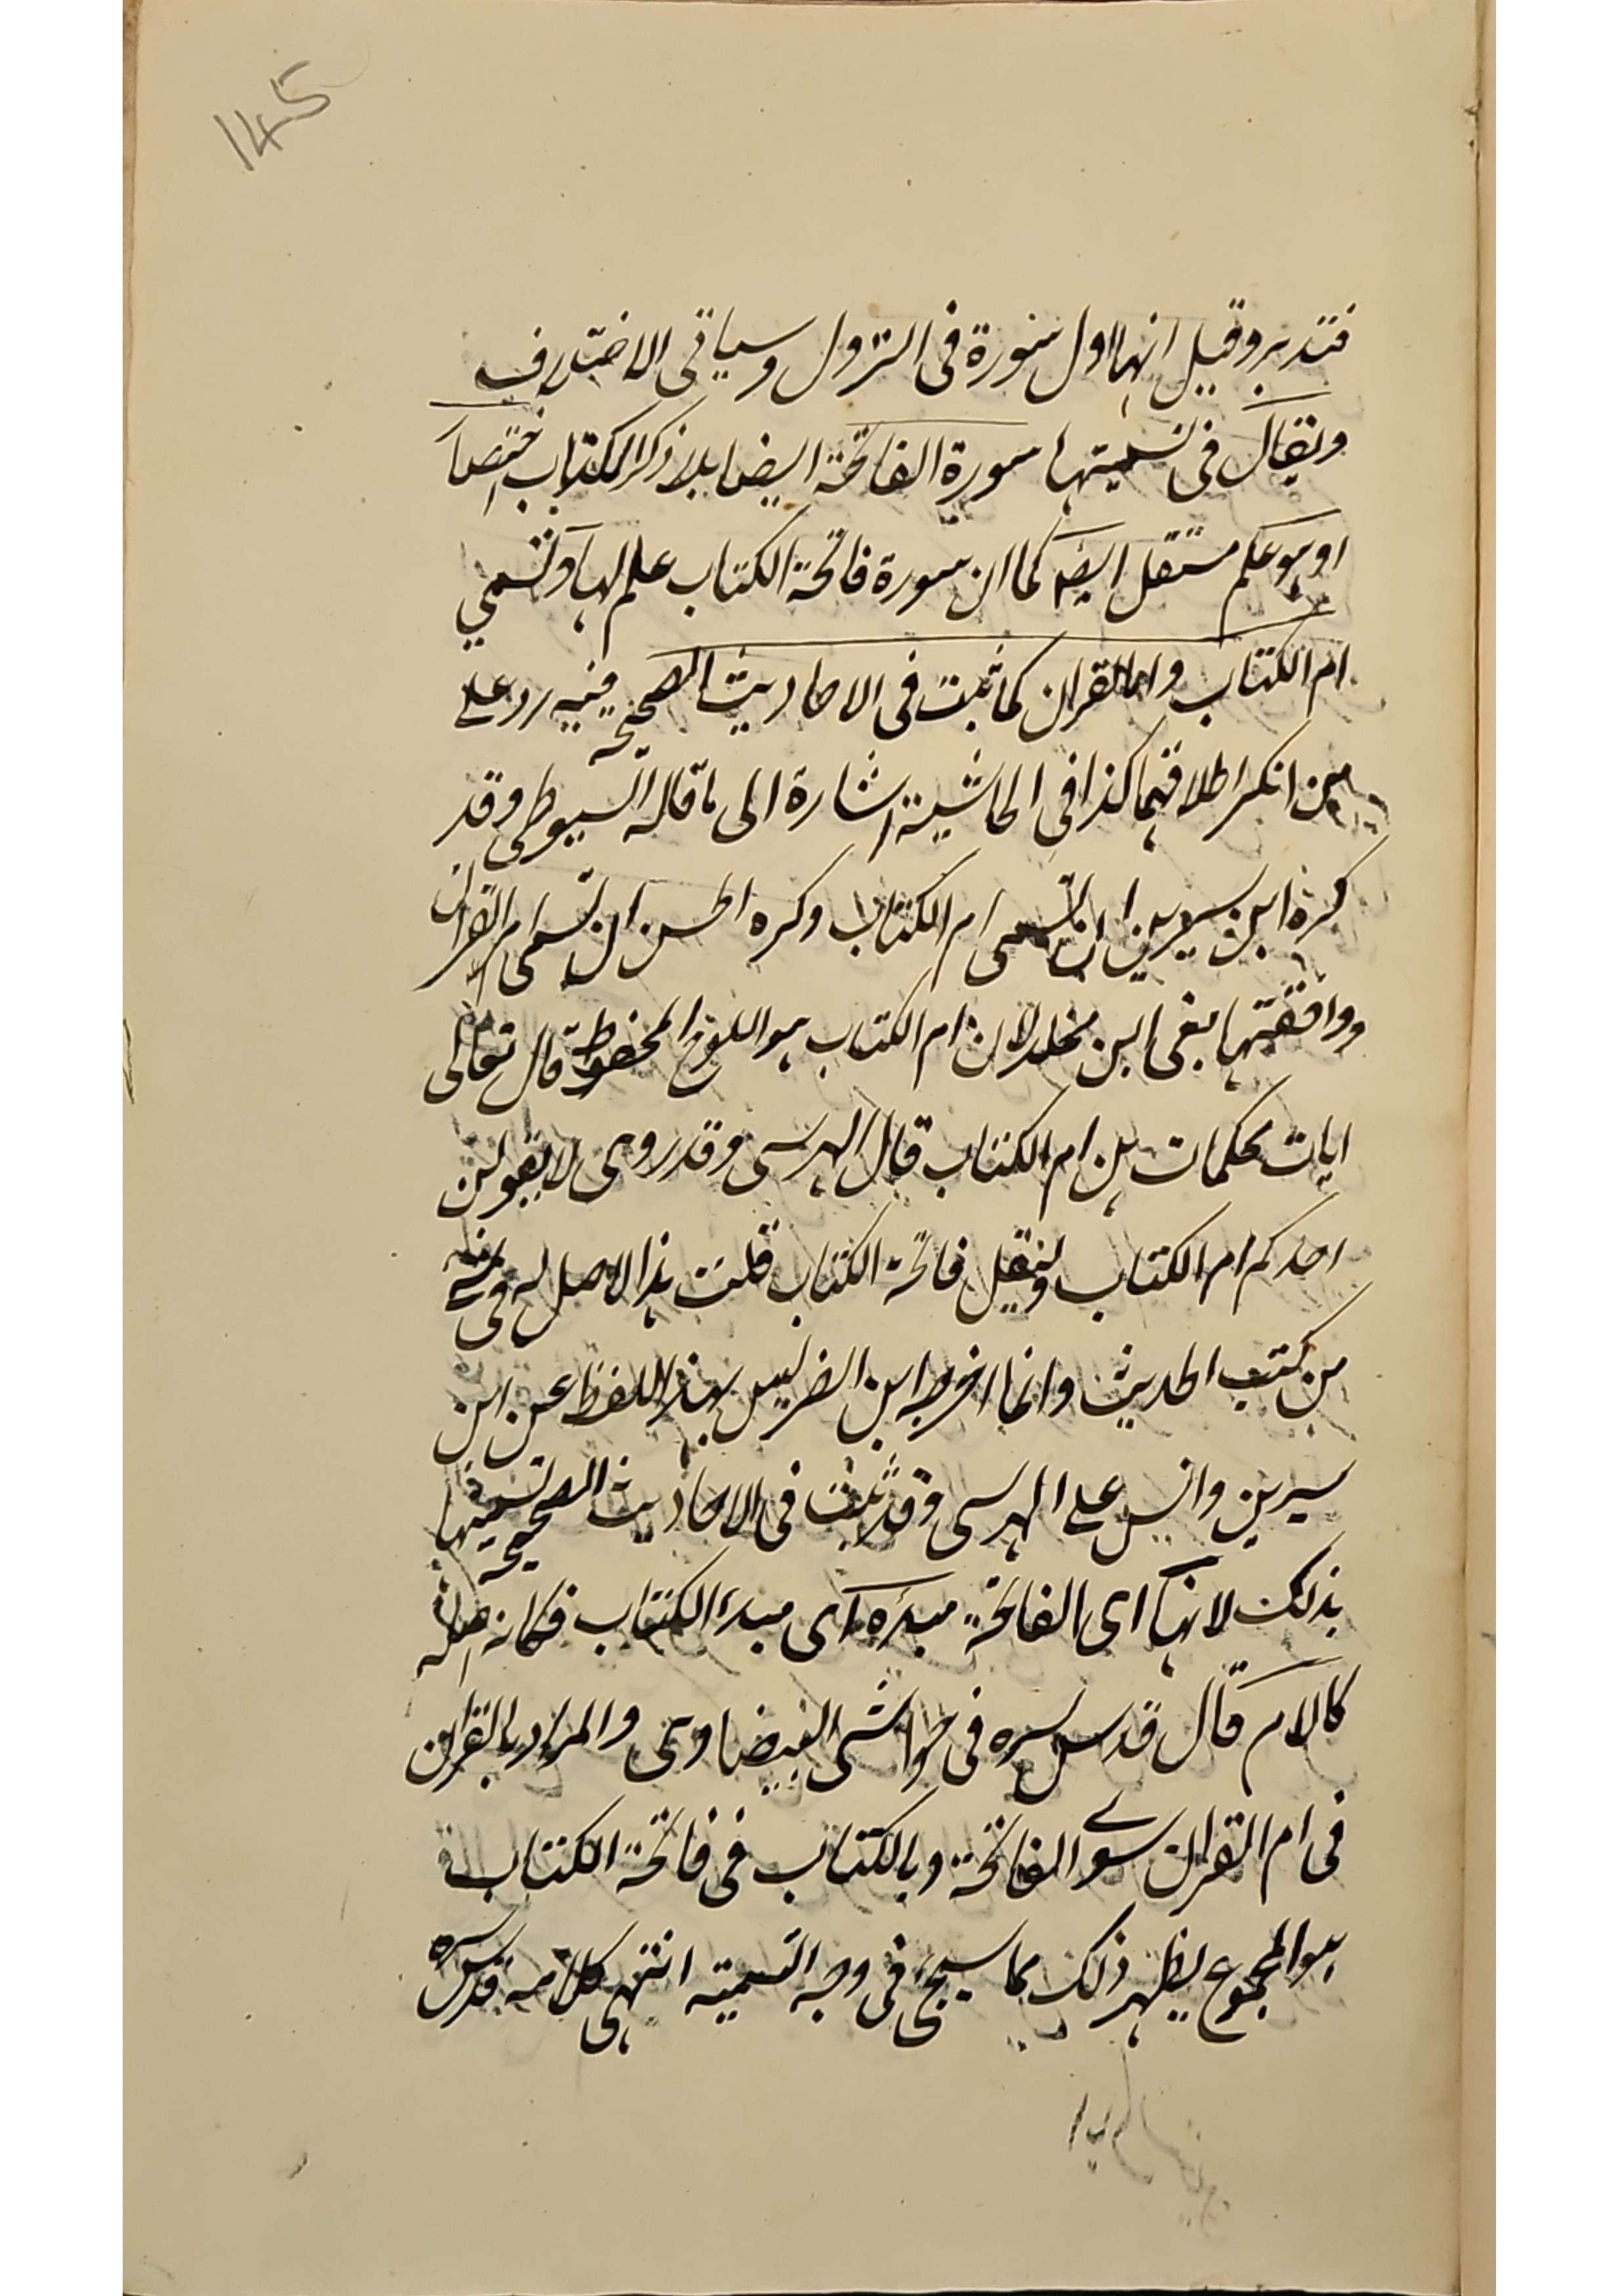 145
فتدبر وقيل انها اول سورة فى النزول وسياتى الاختلاف
ويقال فى تسميتها سورة الفاتحة ايضا بلا ذكر الكتاب اختصارا
او هو علم مستقل ايضا كما ان سورة فاتحة الكتاب علم لها وتسمى
ام الكتاب وام القران كما ثبت فى الاحاديث الصحيحة ففيه رد على
من انكر اطلاقهما كذا فى الحاشية اشارة الى ما قاله السيوطى وقد
كره ابن سيرين ان تسمى ام الكتاب وكره الحسن ان تسمى ام القران
ووافقتهما بقى ابن مخلد لان ام الكتاب هو اللوح المحفوظ قال تعالى
ايات محكمات هن ام الكتاب قال المرسى وقد روى لا يقولن
احدكم ام الكتاب وليقل فاتحة الكتاب قلت هذا لا اصل له فى شئ
من كتب الحديث وانما اخرجه ابن الضريس بهذا اللفظ عن ابن
سيرين والتبس على المرسى وقد ثبت فى الاحاديث الصحيحة تسميتها
بذلك لانها اى الفاتحة مبدءه اى مبدء الكتاب فكانه اصله
كالام قال قدس سره فى حواشى البيضاوى والمراد بالقران
فى ام القران سوى الفاتحة وبالكتاب فى فاتحة الكتاب
هو المجموع يظهر ذلك مما سيجئ فى وجه التسمية انتهى كلامه قدس سره